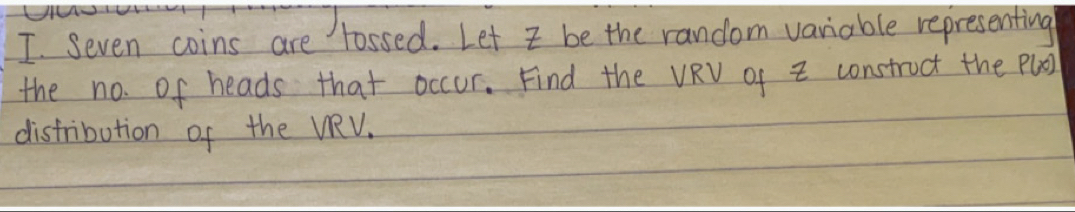 I. Seven coins are tossed. Let z be the random variable representing
the no. of heads that occur. Find the VRV of z construct the P(x)
distribution of the VRV.